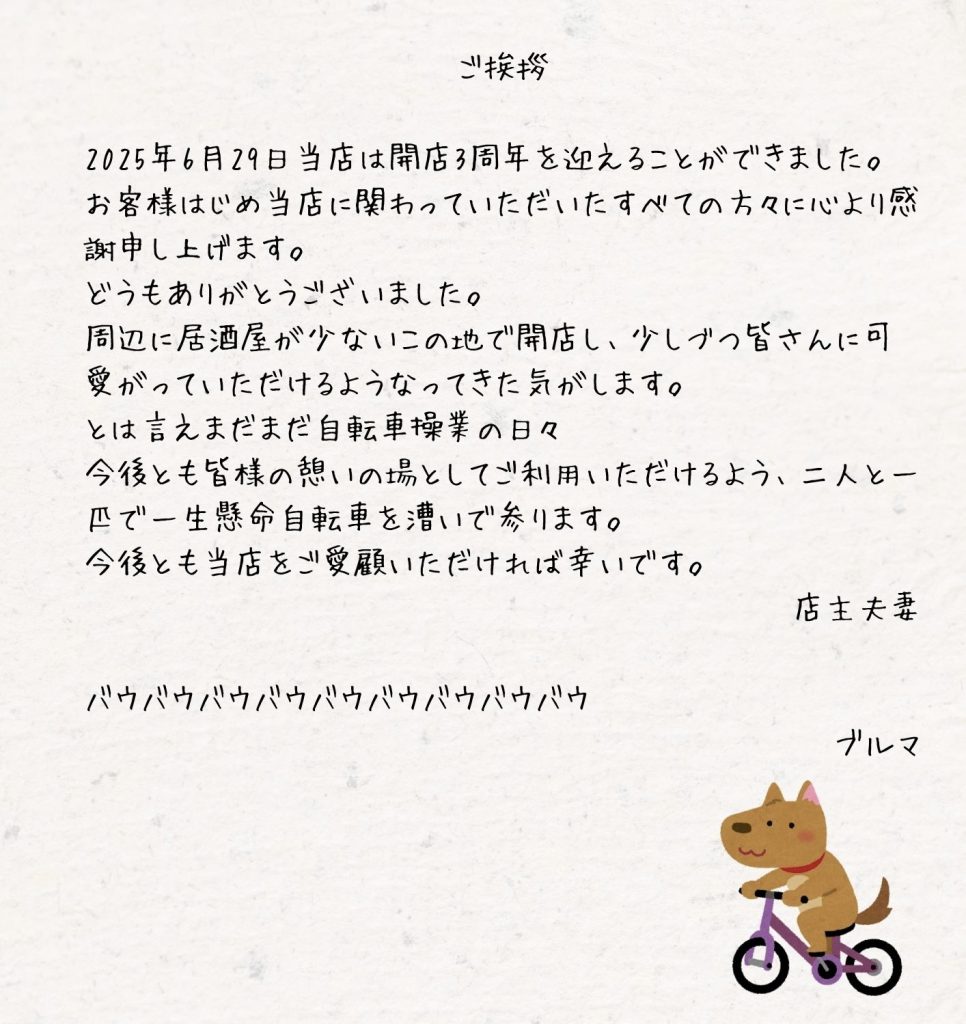 ご挨拶
2025年6月29日当店は開店3周年を迎えることができました。
お客様はじめ当店に関わっていただいたすべての方々に心より感
謝申し上げます。
どうもありがとうございました。
周辺に居酒屋が少ないこの地で開店し、少しづつ皆さんに可
愛がっていただけるようなってきた気がします。
とは言えまだまだ自転車操業の日々
今後とも皆様の憩いの場としてご利用いただけるよう、二人と一
匹で一生懸命自転車を漕いで参ります。
今後とも当店をご愛顧いただければ幸いです。
店主夫妻
バウバウバウバウバウバウバウバウバウ
ブルマ